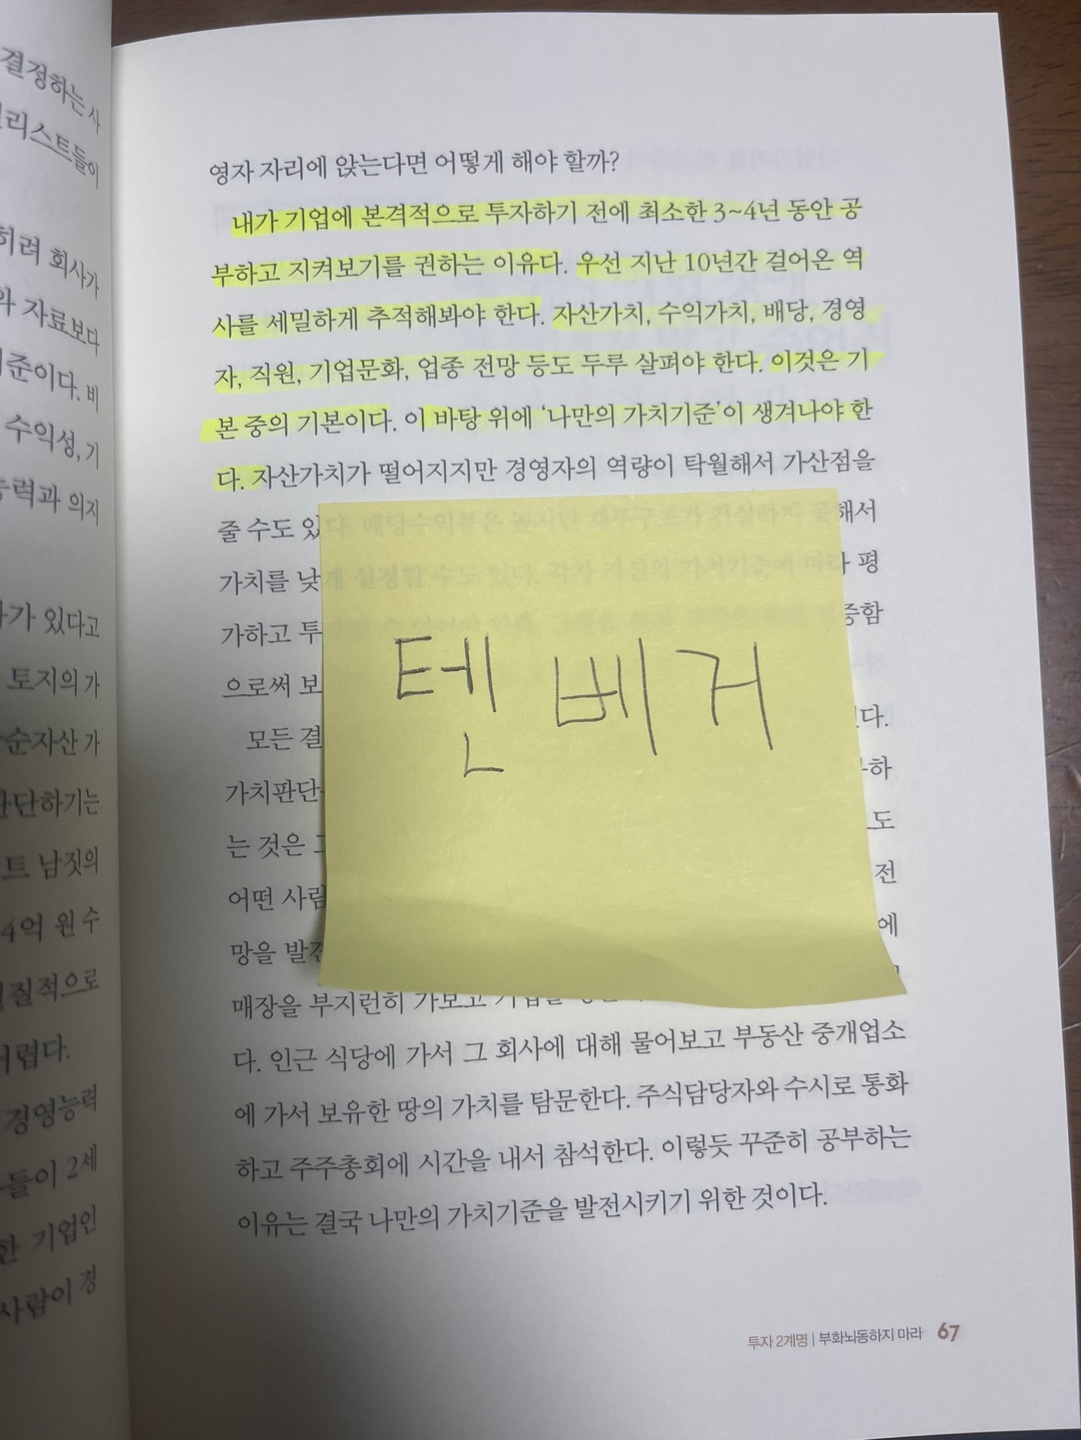 결정하는 사
리스트들이
히려 회사가
와 자료보다
준이다. 비
수익성, 기
능력과 의지
가 있다고
토지의 가
순자산 가
판단하기는
트 남짓의
4억 원 수
질적으로
어렵다.
경영능력
들이 2세
한 기업인
사람이 경
영자 자리에 앉는다면 어떻게 해야 할까?
내가 기업에 본격적으로 투자하기 전에 최소한 3~4년 동안 공
부하고 지켜보기를 권하는 이유다. 우선 지난 10년간 걸어온 역
사를 세밀하게 추적해봐야 한다. 자산가치, 수익가치, 배당, 경영
자, 직원, 기업문화, 업종 전망 등도 두루 살펴야 한다. 이것은 기
본 중의 기본이다. 이 바탕 위에 ‘나만의 가치기준’이 생겨나야 한
다. 자산가치가 떨어지지만 경영자의 역량이 탁월해서 가산점을
줄 수도 있다. 배당수익률은 높지만 재무구조가 건실하지 못해서
가치를 낮게 설정할 수도 있다. 각자 자신의 가치기준에 따라 평
가하고 투 증함
으로써 보
모든 결 다.
가치판단 하
는 것은 도
어떤 사람 전
망을 발견 에
매장을 부지런히 가보고 기업을
다. 인근 식당에 가서 그 회사에 대해 물어보고 부동산 중개업소
에 가서 보유한 땅의 가치를 탐문한다. 주식담당자와 수시로 통화
하고 주주총회에 시간을 내서 참석한다. 이렇듯 꾸준히 공부하는
이유는 결국 나만의 가치기준을 발전시키기 위한 것이다.
텐베거
투자 2계명 | 부화뇌동하지 마라 67